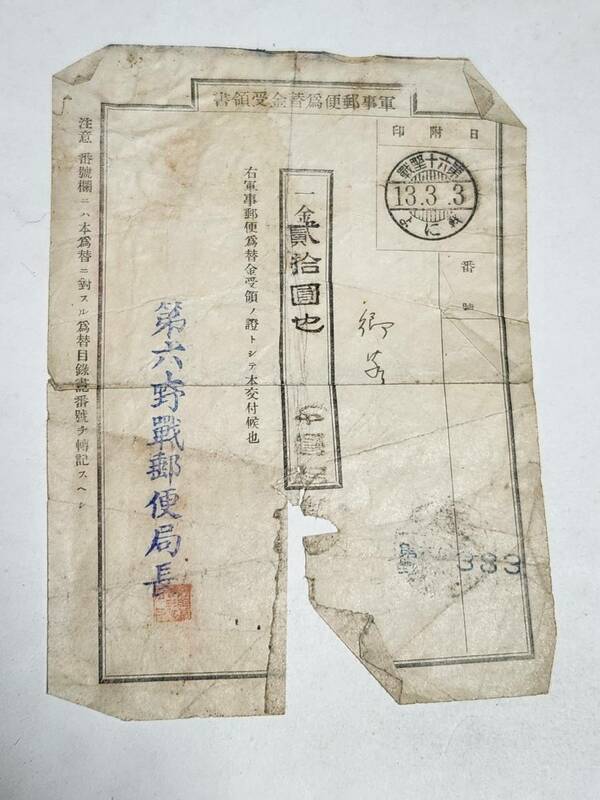 軍事郵便爲替金受領書
日附印
13.3.3
番號
一金貳拾圓也
右軍事郵便爲替金受領ノ證トシテ本交付候也
第六野戰郵便局長
注意 番號欄ニハ本爲替ニ對スル爲替目錄書記番號ヲ轉記スヘシ
383